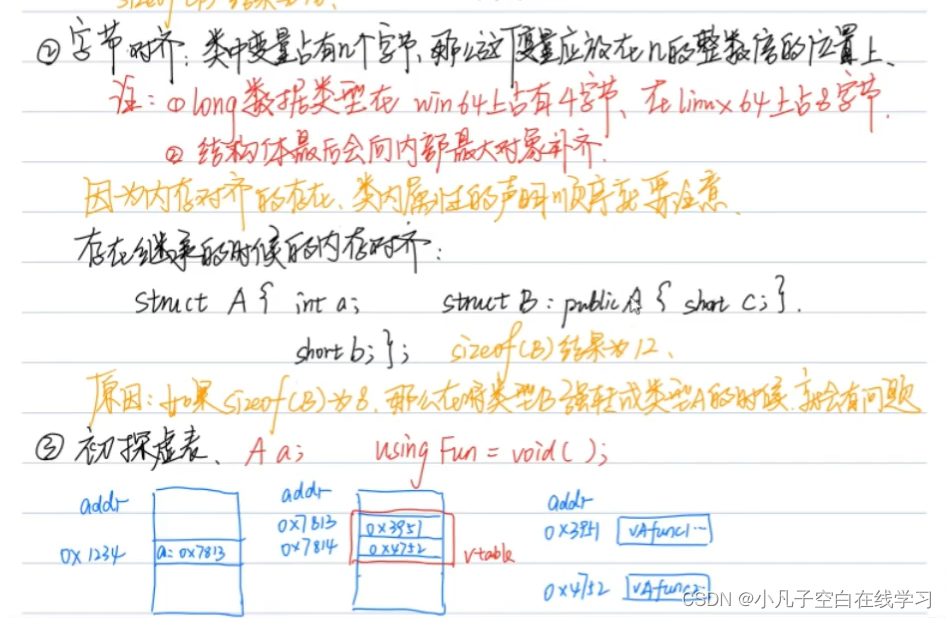 ② 字节对齐：类中变量占有n个字节、那么这个变量应放在n的整数倍的位置上、
注：① long数据类型在 win 64上占有4字节、在linux 64上占8字节.
② 结构体最后会向内部最大对象补齐.
因为内存对齐的存在、类内属性的声明顺序就要注意、
存在继承的时候的内存对齐：
struct A { int a; struct B : public A { short c; }.
short b; }; sizeof(B) 结果为 12、
原因：如果 sizeof(B)为8、那么在将类型B强转成类型A的时候、就会有问题
③ 初探虚表、 A a; using Fun = void( );
addr addr addr
0x7813 0x3951 0x3951 vAfunc1...
0x1234 a: 0x7813 0x7814 0x4752 vtable
0x4752 vAfunc2...
CSDN @小凡子空白在线学习